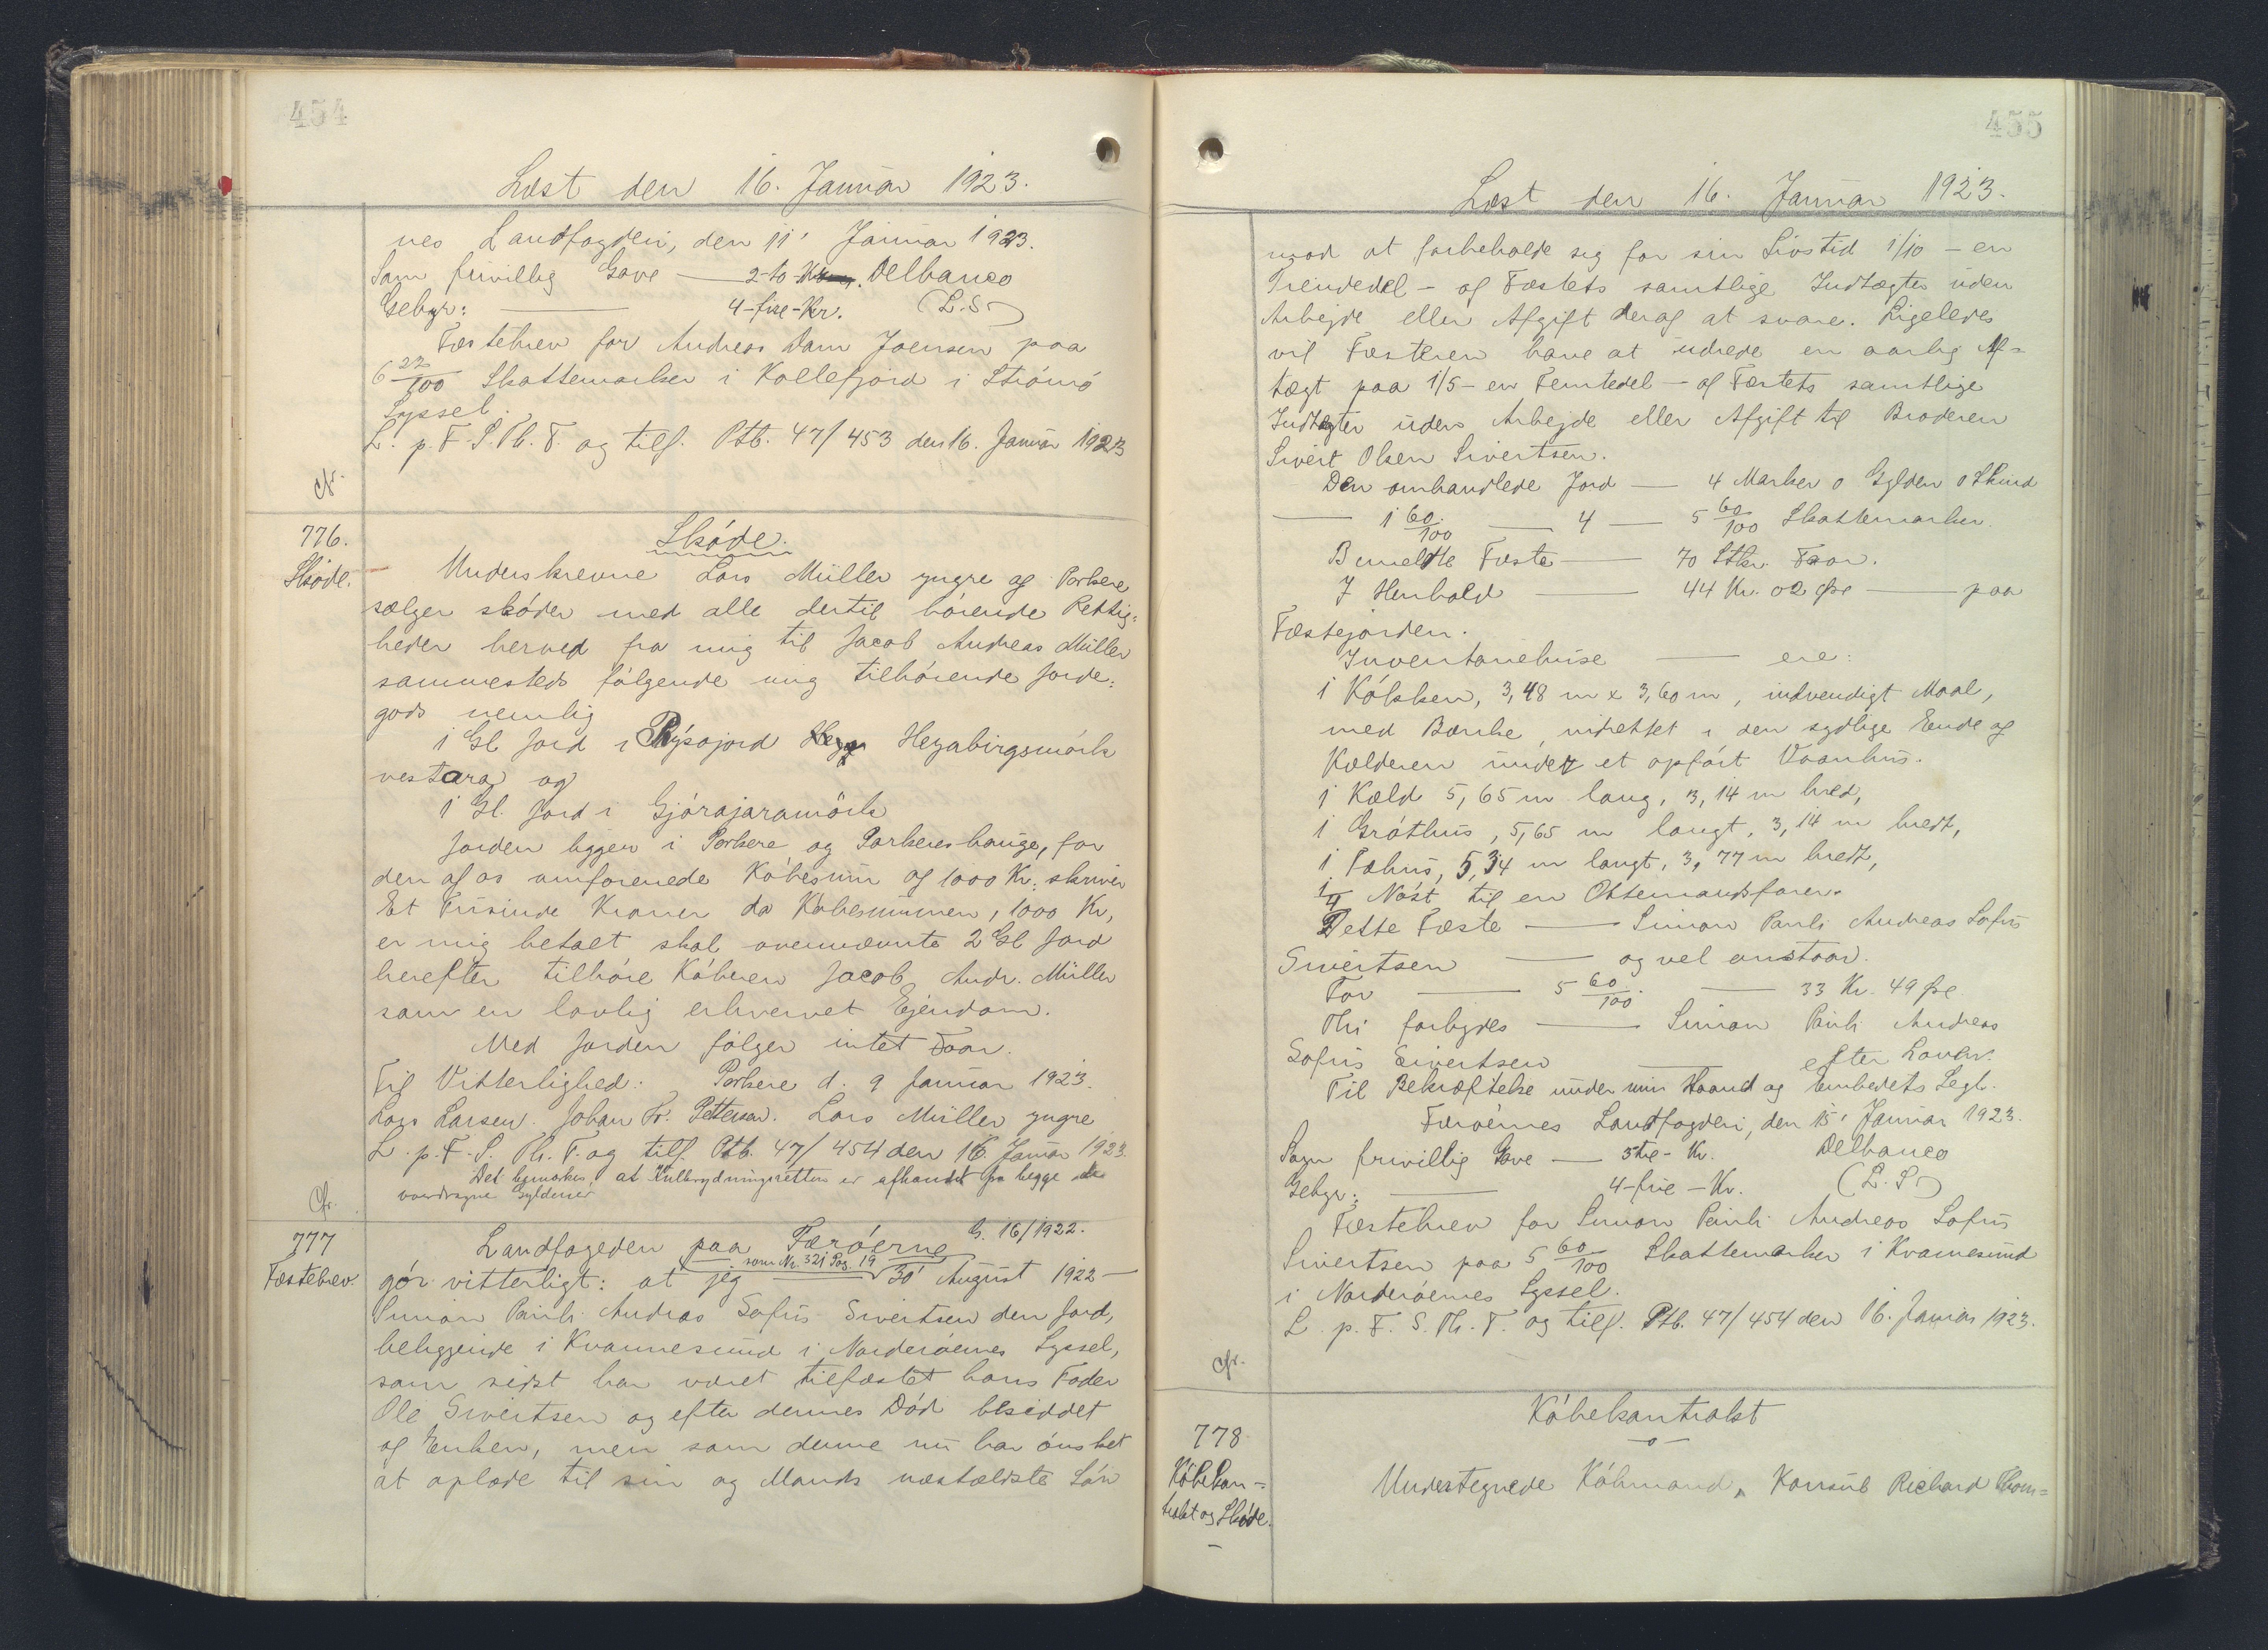 454
Læst den 16. Januar 1923.
nes Landfogderi, den 11' Januar 1923.
Som frivillig Gave — 2-to-Kr. Delbanco
Gebyr: — 4-fire-Kr. (L.S.)
Fæstebrev for Andreas Dam Joensen paa
6 22/100 Skattemarker i Kollefjord i Strømø
Syssel.
L. p. F. S. Th. F. og tilf. Ptb. 47/453 den 16. Januar 1923
Cfr.
776.
Skøde.
Skøde.
Underskrevne Lars Müller yngre af Porkere
sælger skøder med alle dertil hørende Rettig=
heder herved fra mig til Jacob Andreas Müller
sammesteds følgende mig tilhørende Jorde=
gods nemlig
1 Gl Jord i Rýsajord Heyabirgsmörk
vestara og
1 Gl. Jord i Gjórajaramörk
Jorden ligger i Porkere og Porkereshauge, for
den af os omforenede Købesum af 1000 Kr. skriver
Et Tusinde Kroner da Købesummen, 1000 Kr,
er mig betalt skal ovennævnte 2 Gl Jord
herefter tilhøre Køberen Jacob Andr. Müller
som en lovlig erhvervet Ejendom.
Med Jorden følger intet Faar.
Til Vitterlighed: Porkere d. 9 Januar 1923.
Lars Larsen. Johan Fr. Petterson. Lars Müller yngre
L. p. F. S. Th. F. og tilf. Ptb. 47/454 den 16. Januar 1923.
Det bemærkes, at Kulbrydningsretten er afhændet fra begge de
overdragne Gyldener
Cfr.
777
Fæstebrev.
Landfogeden paa Færøerne G. 16/1922.
som Nr. 321 Pag. 19
gør vitterligt: at jeg — 30' August 1922 —
Simon Pauli Andras Sofus Sivertsen den Jord,
beliggende i Kvannesund i Norderøernes Syssel,
som sidst har været tilfæstet hans Fader
Ole Sivertsen og efter dennes Død besiddet
af Enken, men som denne nu har ønsket
at oplade til sin og Mands næstældste Søn
455
Læst den 16. Januar 1923.
mod at forbeholde sig for sin Livstid 1/10 - en
Tiendedel - af Fæstets samtlige Indtægter uden
Arbejde eller Afgift deraf at svare. Ligeledes
vil Fæsteren have at udrede en aarlig Af=
tægt paa 1/5 - en Femtedel - af Fæstets samtlige
Indtægter uden Arbejde eller Afgift til Broderen
Sivert Olsen Sivertsen.
Den omhandlede Jord — 4 Marker 0 Gylden 0 Skind
— 1 60/100 — 4 — 5 60/100 Skattemarker.
Bemeldte Fæste — 70 Stkr. Faar.
I Henhold — 44 Kr. 02 Øre — paa
Fæstejorden.
Inventariehuse — ere:
1 Køkken, 3,48 m x 3,60 m, indvendigt Maal,
med Bænke, indrettet i den sydlige Ende af
Kælderen under et opført Vaanhus.
1 Kæld 5,65 m lang, 3,14 m bred,
1 Gróthus, 5,65 m langt, 3,14 m bredt,
1 Fæhus, 5,34 m langt, 3,77 m bredt,
1/4 Nøst til en Ottemandsfarer.
Dette Fæste — Simon Pauli Andreas Sofus
Sivertsen — og vel anstaar.
For — 5 60/100. — 33 Kr. 49 Øre.
Thi forbydes — Simon Pauli Andreas
Sofus Sivertsen — efter Loven.
Til Bekræftelse under min Haand og Embedets Segl.
Færøernes Landfogderi, den 15' Januar 1923.
Som frivillig Gave — 3 tre - Kr. Delbanco
Gebyr: — 4-fire-Kr. (L.S.)
Fæstebrev for Simon Pauli Andreas Sofus
Sivertsen paa 5 60/100 Skattemarker i Kvannesund
i Norderøernes Syssel.
L. p. F. S. Th. F. og tilf. Ptb. 47/454 den 16. Januar 1923.
Cfr.
778
Købekon=
trakt og Skøde.
Købekontrakt
Undertegnede Købmand, Konsul Richard Thom=